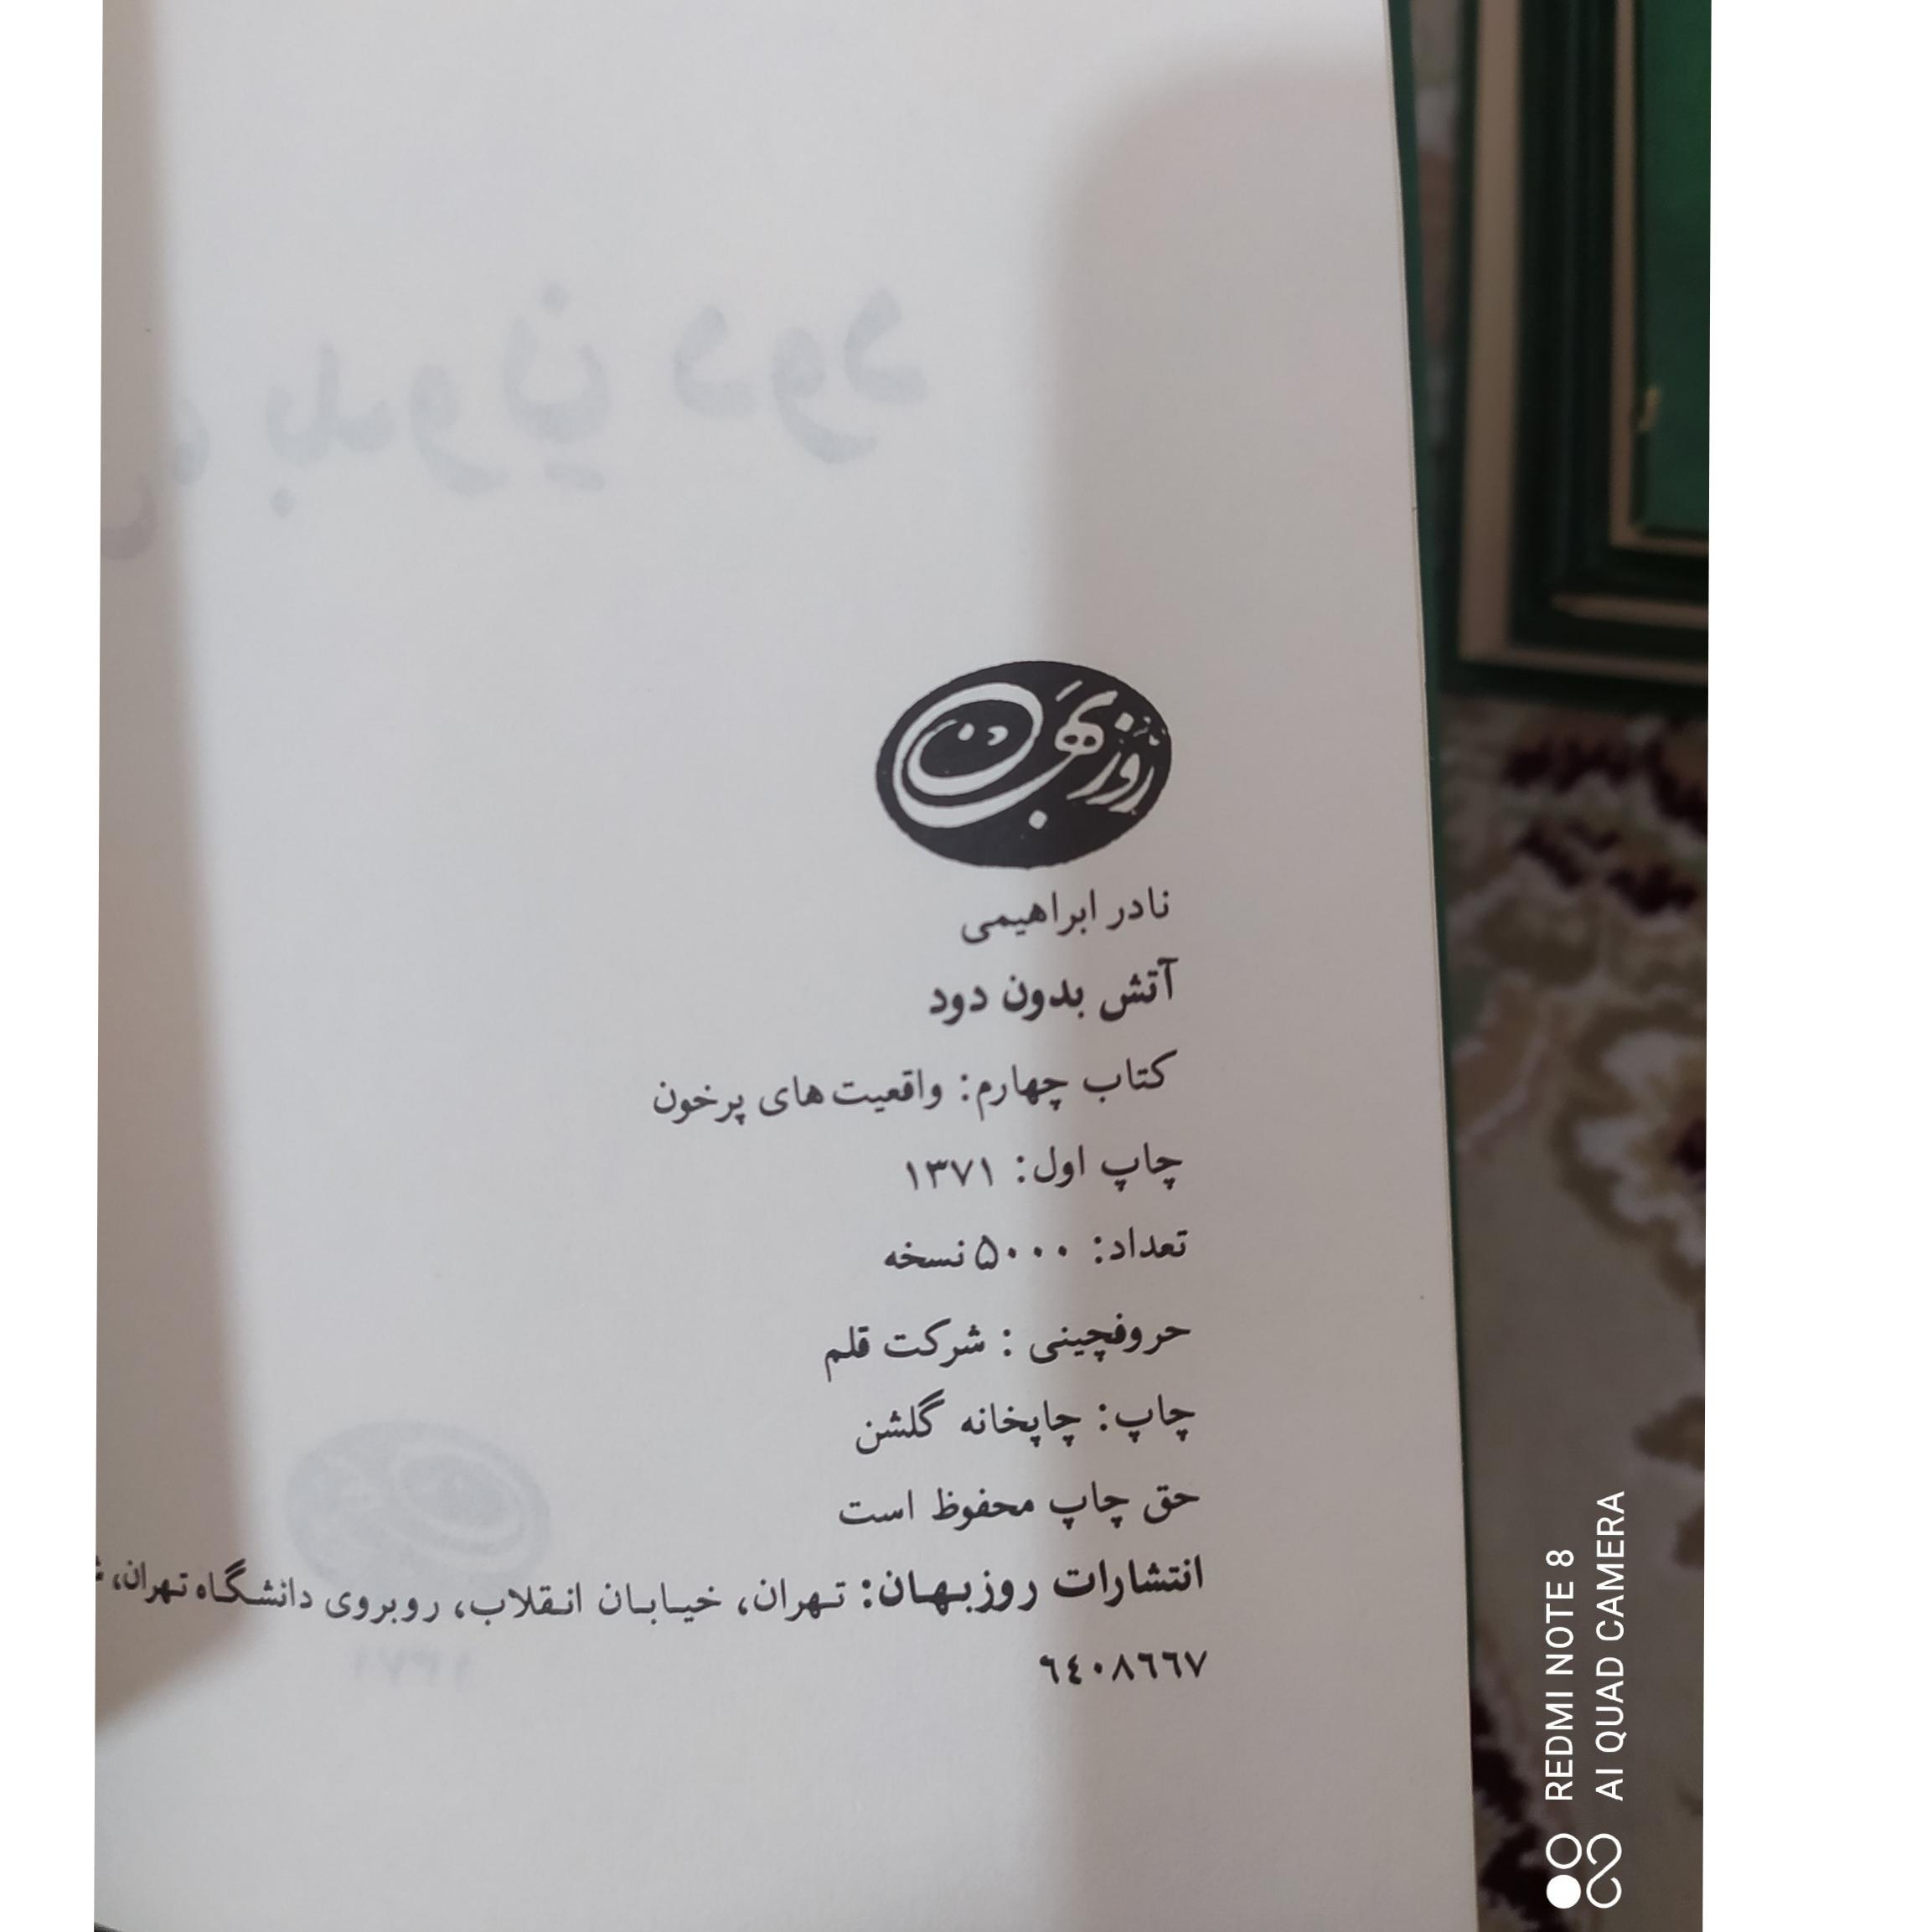 روزبهان
نادر ابراهیمی
آتش بدون دود
کتاب چهارم: واقعیت های پرخون
چاپ اول: ۱۳۷۱
تعداد: ۵۰۰۰ نسخه
حروفچینی : شرکت قلم
چاپ: چاپخانه گلشن
حق چاپ محفوظ است
انتشارات روزبهان: تهران، خیابان انقلاب، روبروی دانشگاه تهران،
٦٤٠٨٦٦٧
REDMI NOTE 8
AI QUAD CAMERA